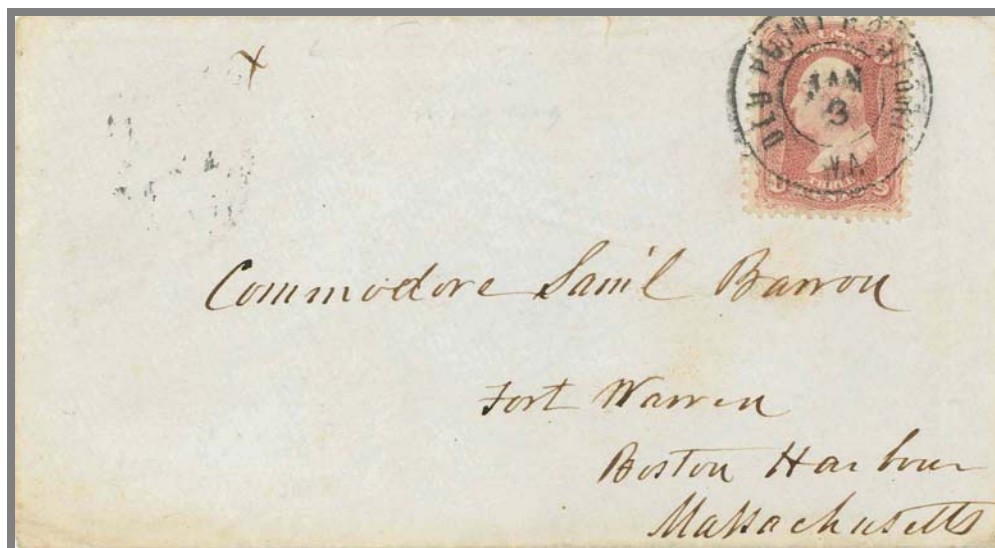 X
OLD POINT COMFORT
JAN
3
VA.
Commodore Sam'l Barron
Fort Warren
Boston Harbour
Massachusetts